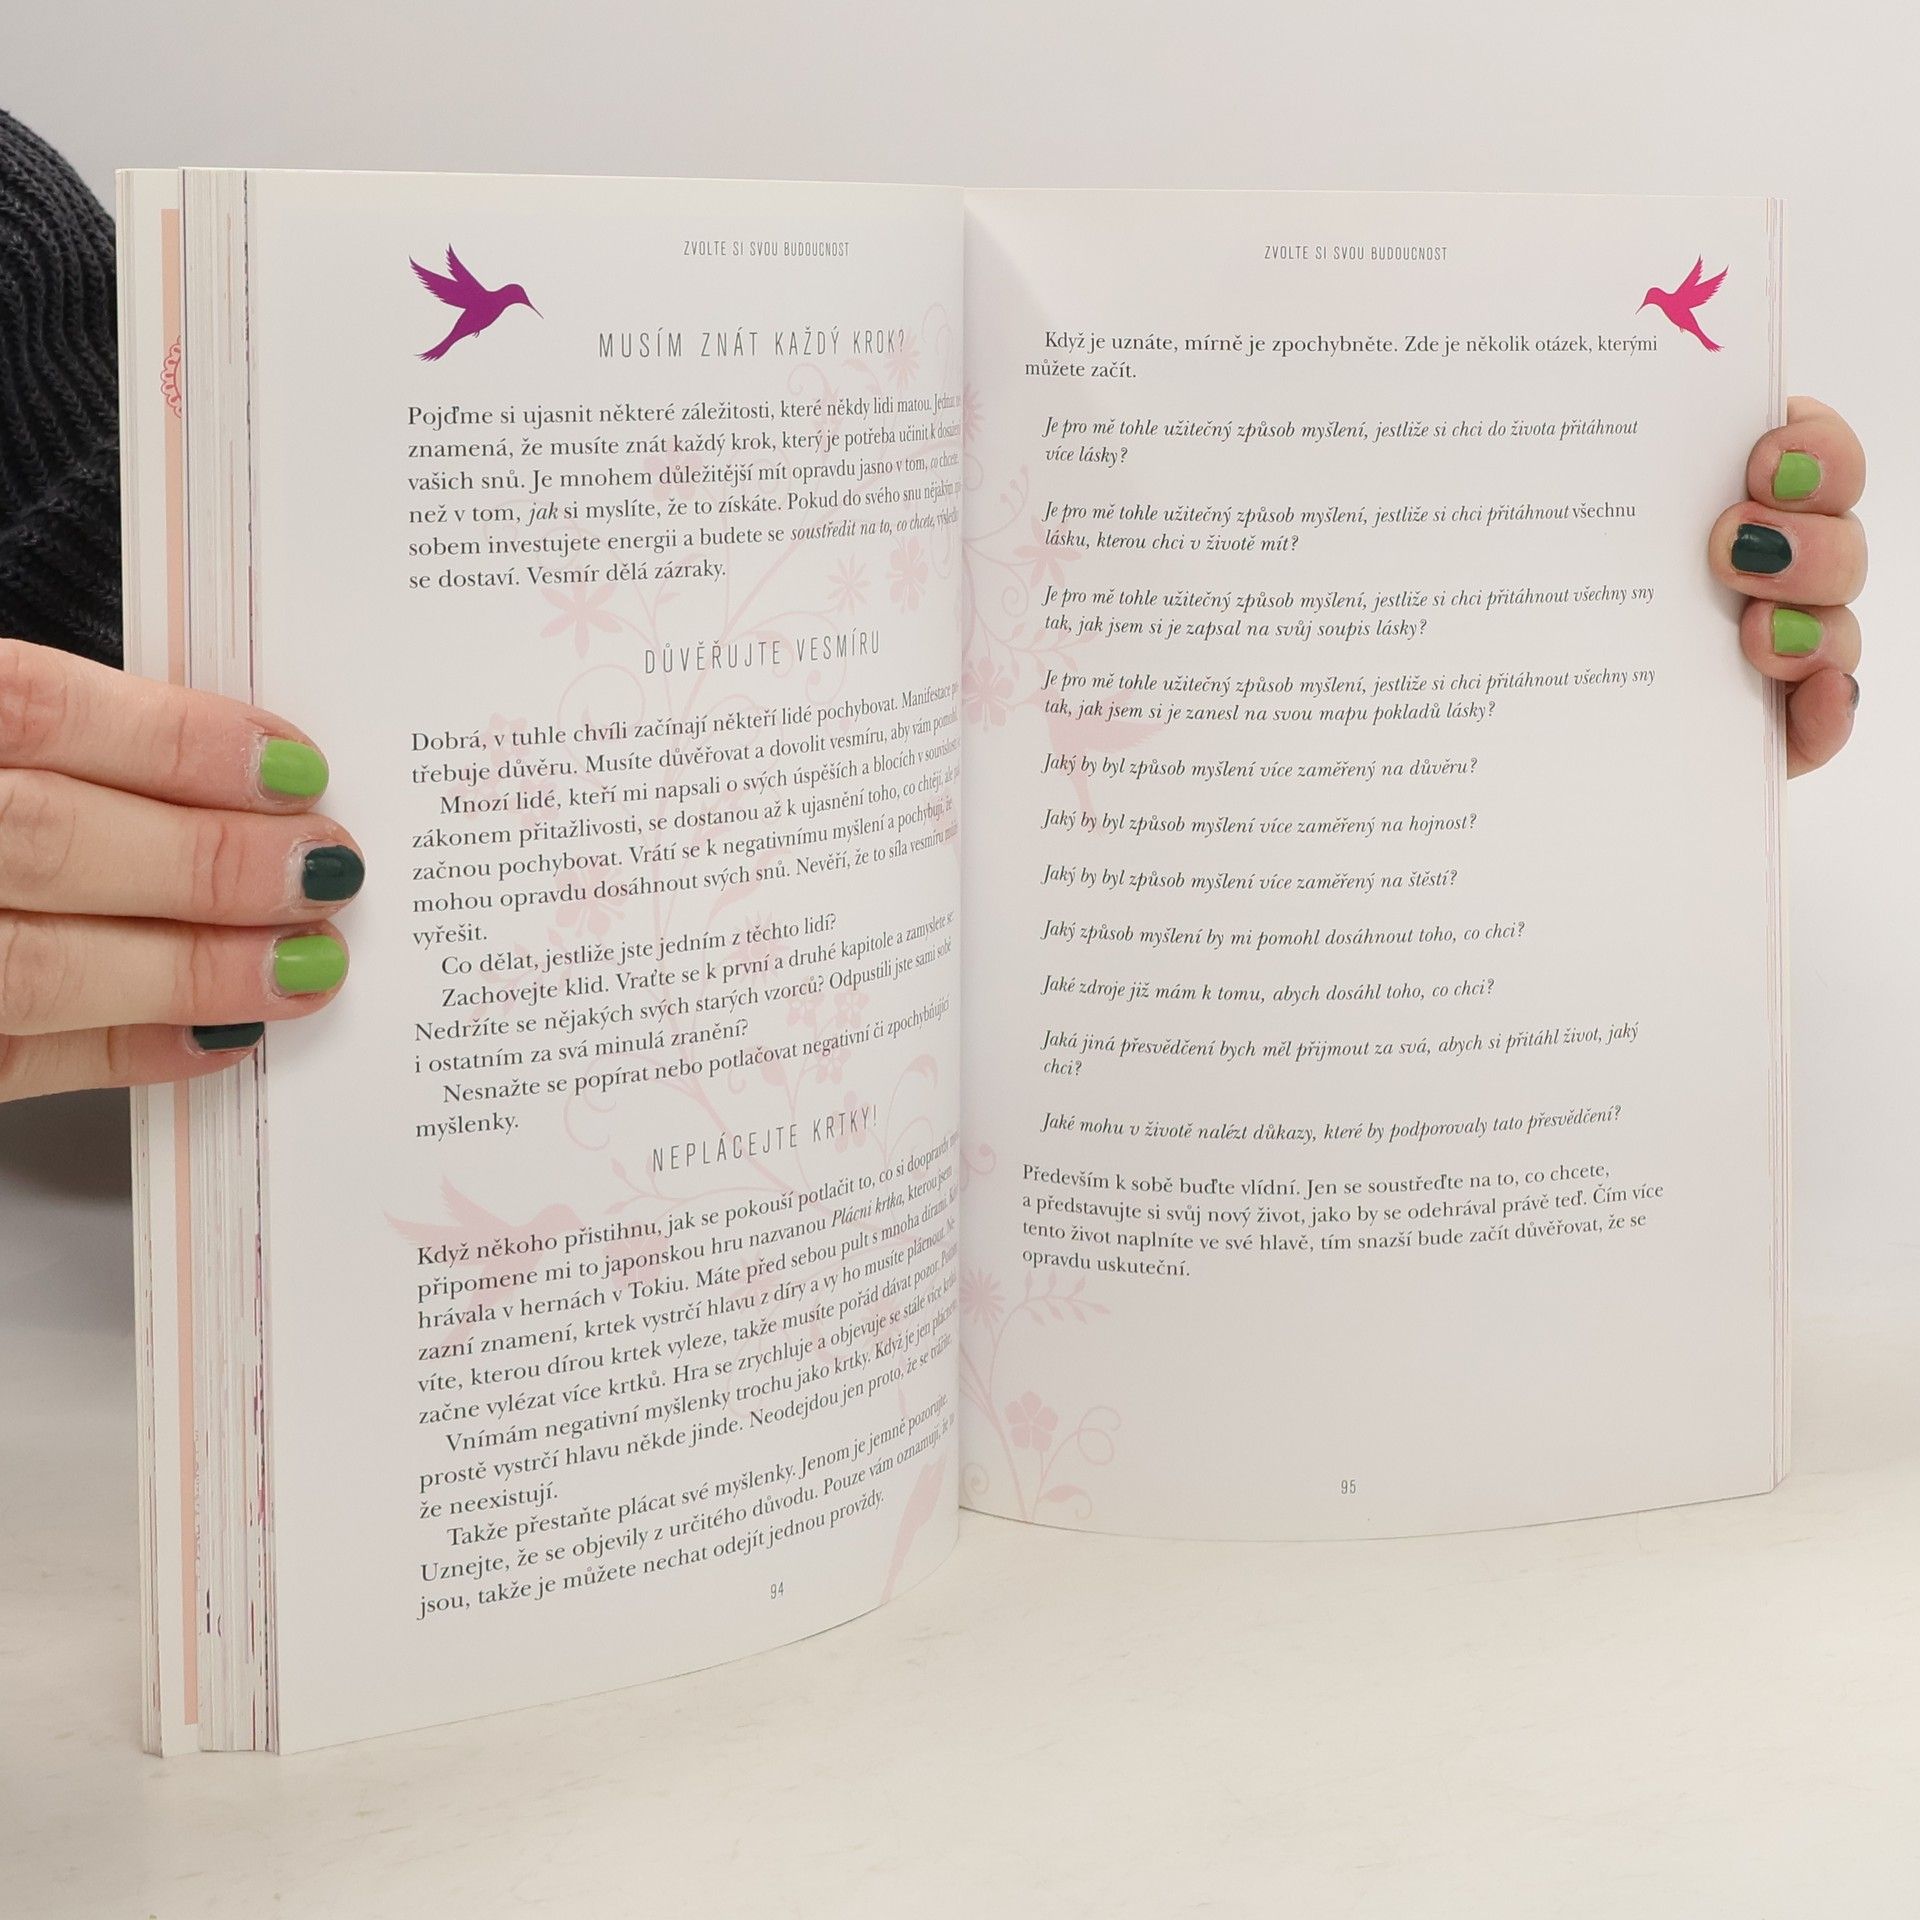 ZVOLTE SI SVOU BUDOUCNOST
MUSÍM ZNÁT KAŽDÝ KROK?
Pojďme si ujasnit některé záležitosti, které někdy lidi matou. Jednat
znamená, že musíte znát každý krok, který je potřeba učinit k dosažení
vašich snů. Je mnohem důležitější mít opravdu jasno v tom, co chcete,
než v tom, jak si myslíte, že to získáte. Pokud do svého snu nějakým
sobem investujete energii a budete se soustředit na to, co chcete,
se dostaví. Vesmír dělá zázraky.
DŮVĚŘUJTE VESMÍRU
Dobrá, v tuhle chvíli začínají někteří lidé pochybovat. Manifestace
třebuje důvěru. Musíte důvěřovat a dovolit vesmíru, aby vám pomohl.
Mnozí lidé, kteří mi napsali o svých úspěších a blocích v souvislosti
zákonem přitažlivosti, se dostanou až k ujasnění toho, co chtějí, ale
začnou pochybovat. Vrátí se k negativnímu myšlení a pochybují, že
mohou opravdu dosáhnout svých snů. Nevěří, že to síla vesmíru může
vyřešit.
Co dělat, jestliže jste jedním z těchto lidí?
Zachovejte klid. Vraťte se k první a druhé kapitole a zamyslete se:
Nedržíte se nějakých svých starých vzorců? Odpustili jste sami sobě
i ostatním za svá minulá zranění?
Nesnažte se popírat nebo potlačovat negativní či zpochybňující
myšlenky.
NEPLÁCEJTE KRTKY!
Když někoho přistihnu, jak se pokouší potlačit to, co si doopravdy
připomene mi to japonskou hru nazvanou Plácni krtka, kterou jsem
hrávala v hernách v Tokiu. Máte před sebou pult s mnoha dírami. Když
zazní znamení, krtek vystrčí hlavu z díry a vy ho musíte plácnout. Ne
víte, kterou dírou krtek vyleze, takže musíte pořád dávat pozor. Potom
začne vylézat více krtků. Hra se zrychluje a objevuje se stále více krtků.
Vnímám negativní myšlenky trochu jako krtky. Když je jen plácnete,
prostě vystrčí hlavu někde jinde. Neodejdou jen proto, že se tváříte,
že neexistují.
Takže přestaňte plácat své myšlenky. Jenom je jemně pozorujte.
Uznejte, že se objevily z určitého důvodu. Pouze vám oznamují, že
jsou, takže je můžete nechat odejít jednou provždy.
94
ZVOLTE SI SVOU BUDOUCNOST
Když je uznáte, mírně je zpochybněte. Zde je několik otázek, kterými
můžete začít.
Je pro mě tohle užitečný způsob myšlení, jestliže si chci do života přitáhnout
více lásky?
Je pro mě tohle užitečný způsob myšlení, jestliže si chci přitáhnout všechnu
lásku, kterou chci v životě mít?
Je pro mě tohle užitečný způsob myšlení, jestliže si chci přitáhnout všechny sny
tak, jak jsem si je zapsal na svůj soupis lásky?
Je pro mě tohle užitečný způsob myšlení, jestliže si chci přitáhnout všechny sny
tak, jak jsem si je zanesl na svou mapu pokladů lásky?
Jaký by byl způsob myšlení více zaměřený na důvěru?
Jaký by byl způsob myšlení více zaměřený na hojnost?
Jaký by byl způsob myšlení více zaměřený na štěstí?
Jaký způsob myšlení by mi pomohl dosáhnout toho, co chci?
Jaké zdroje již mám k tomu, abych dosáhl toho, co chci?
Jaká jiná přesvědčení bych měl přijmout za svá, abych si přitáhl život, jaký
chci?
Jaké mohu v životě nalézt důkazy, které by podporovaly tato přesvědčení?
Především k sobě buďte vlídní. Jen se soustřeďte na to, co chcete,
a představujte si svůj nový život, jako by se odehrával právě teď. Čím více
tento život naplníte ve své hlavě, tím snazší bude začít důvěřovat, že se
opravdu uskuteční.
95